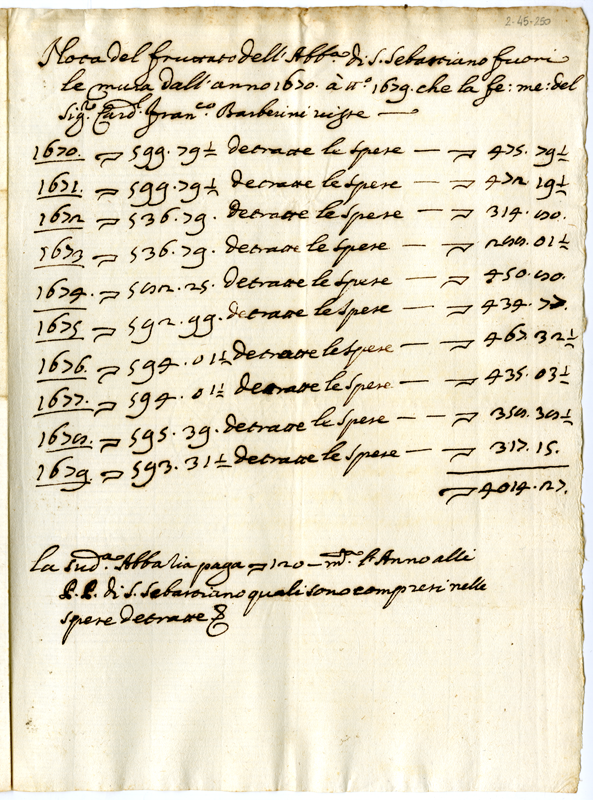 2-45-250
Nota del fruttato dell'Abb.ª di S. Sebastiano fuori
le mura dall'anno 1670. à tt.º 1679. che la fe: me: del
Sig.r Card.l Fran.co Barberini visse —
1670. 599.79½ detratte le spese — 475.79½
1671. 599.79½ detratte le spese — 472.19½
1672 536.79. detratte le spese — 314.80.
1673 536.79. detratte le spese — 288.01½
1674. 582.25. detratte le spese — 450.80.
1675 592.99. detratte le spese — 434.77.
1676. 594.01½ detratte le spese — 467.32½
1677. 594.01½ detratte le spese — 435.03½
1678. 595.39. detratte le spese — 358.38½
1679. 593.31½ detratte le spese — 317.15.
4014.27.
la sud.ª Abbatia paga 120 – m.ta l'Anno alli
P.P. di S. Sebastiano quali sono compresi nelle
spese detratte